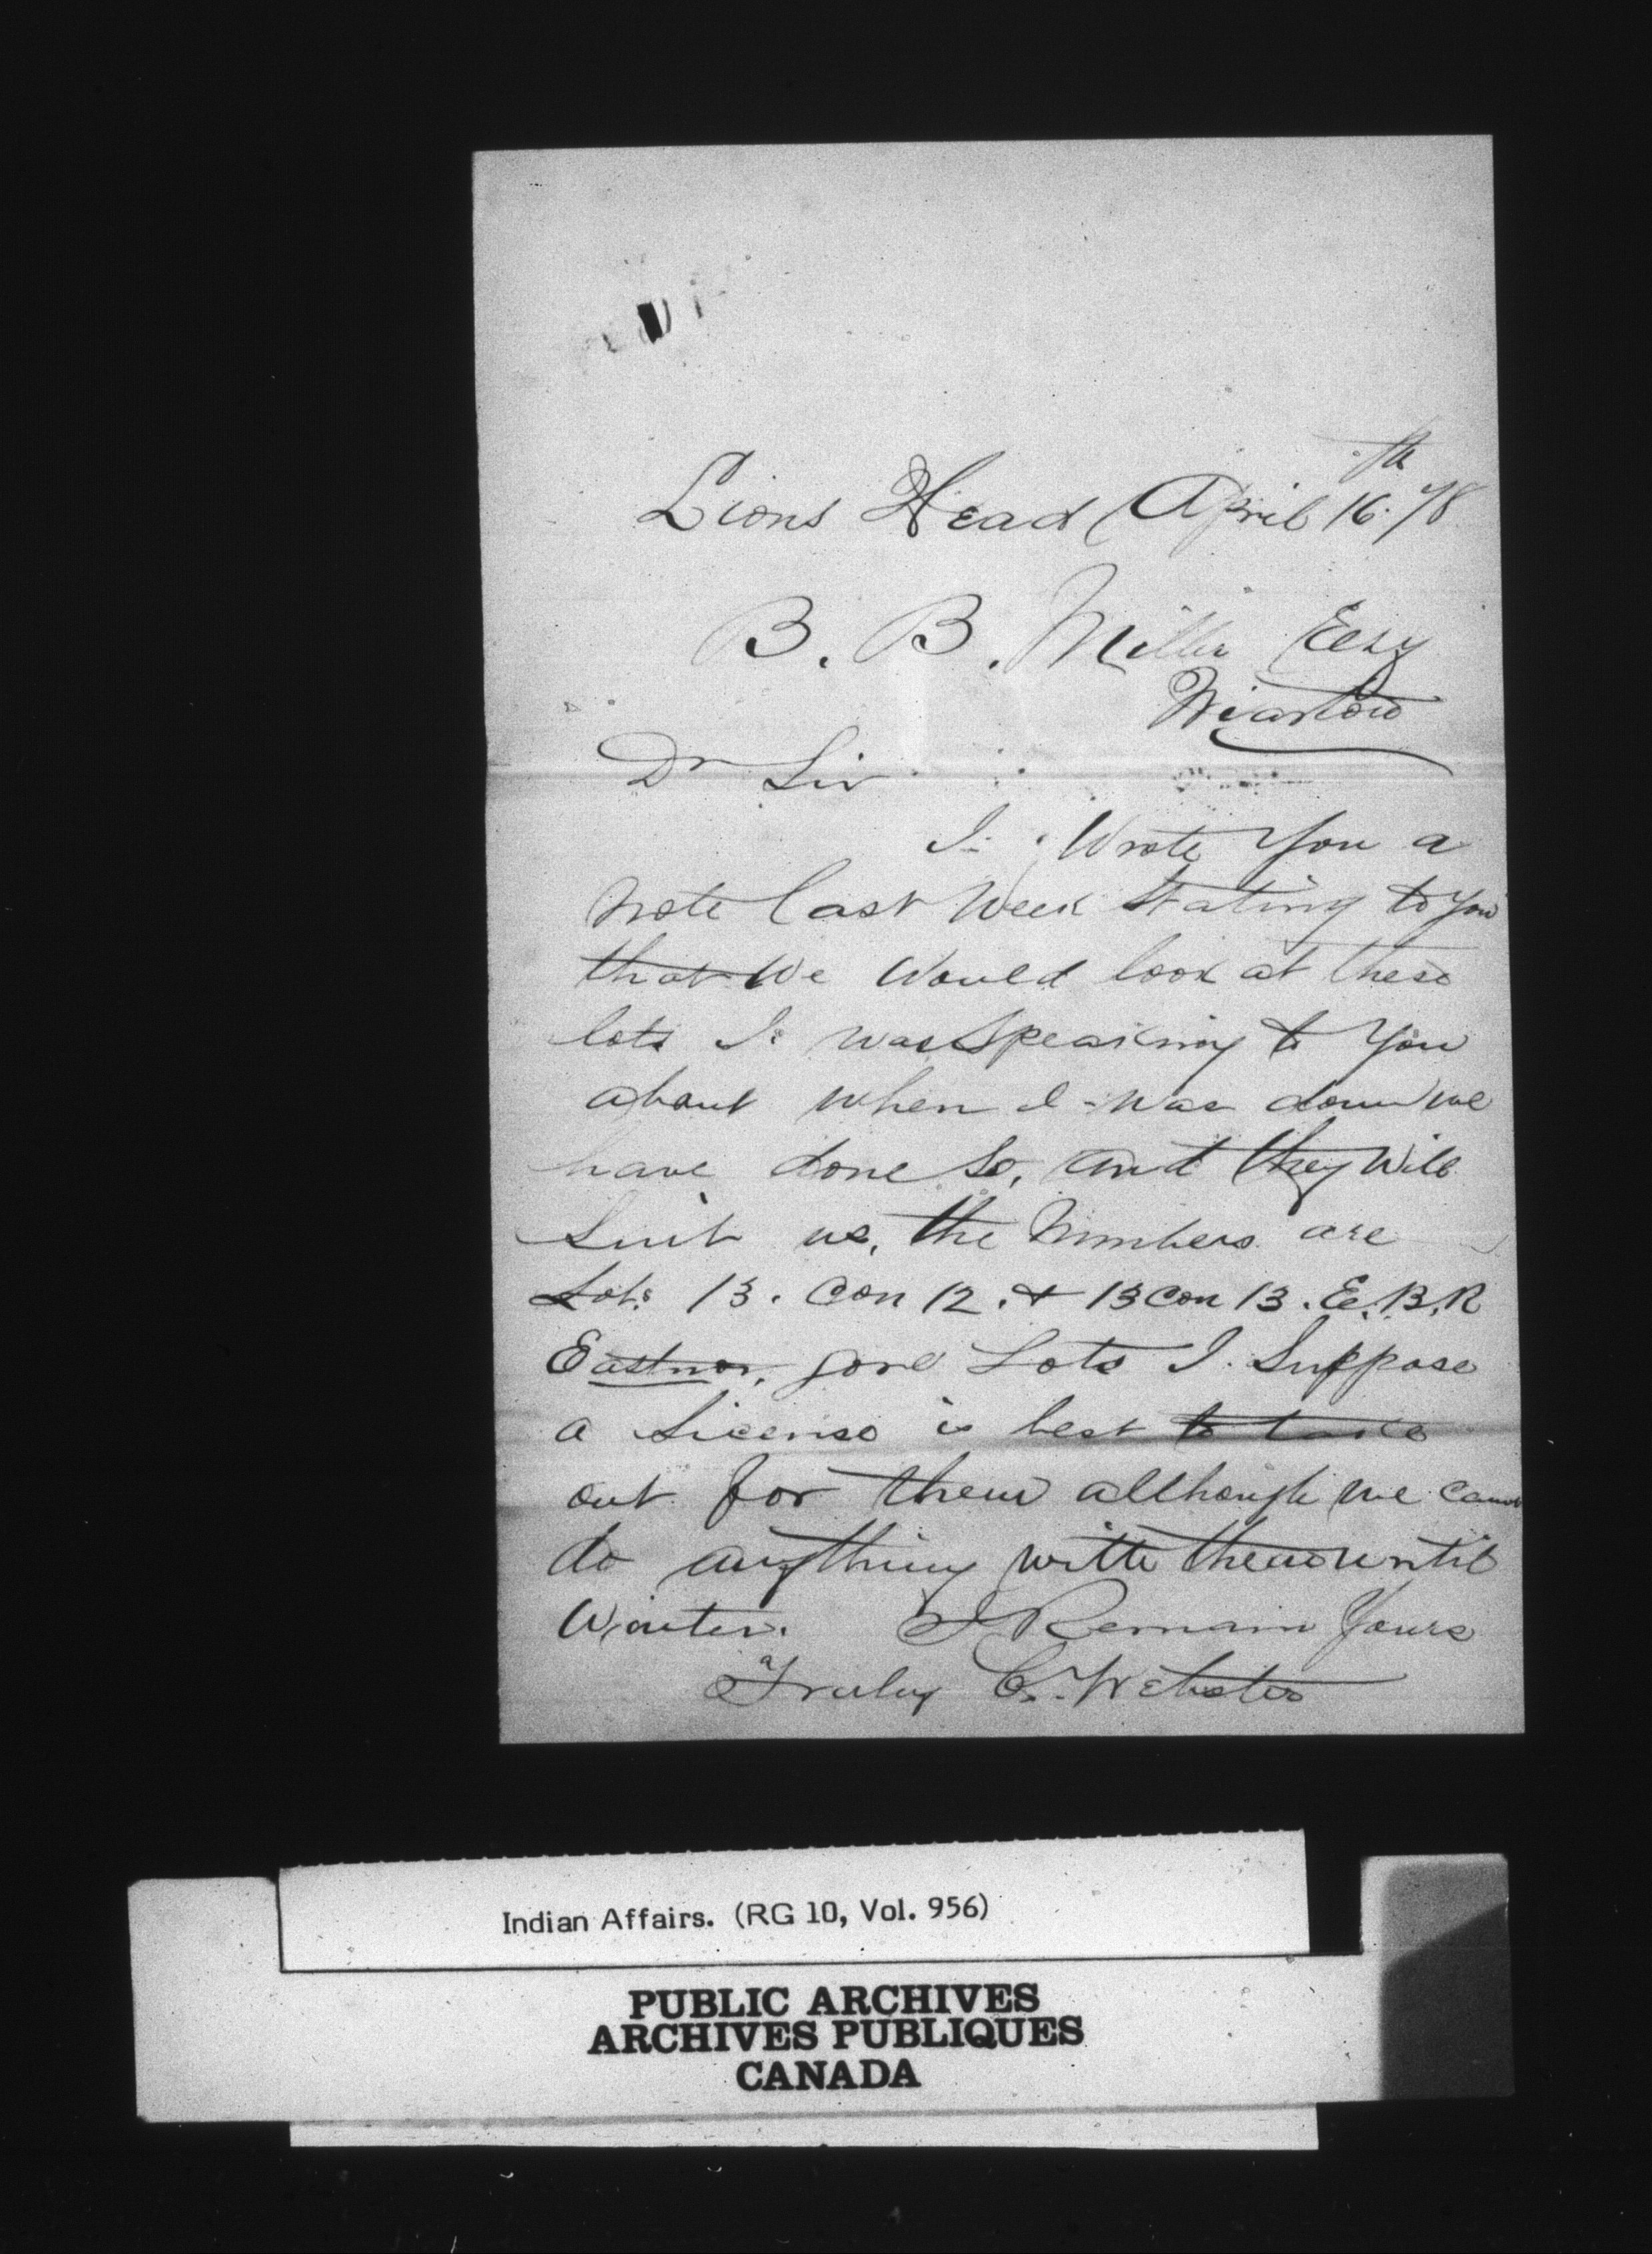 Lions Head April 16th 78
B. B. Miller Esqr
Wiarton
Dr Sir
I Wrote You a
note last Week Stating to you
that We Would look at these
lots I was Speaking to You
about when I was down we
have done So, and they Will
Suit us, the Numbers are
Lots 13. Con 12. & 13 Con 13. E. B. R
Eastnor, gore Lots I Suppose
a License is best to take
out for them although we cannot
do anything with them until
Winter. I Remain Yours
Truly C. Webster
Indian Affairs. (RG 10, Vol. 956)
PUBLIC ARCHIVES
ARCHIVES PUBLIQUES
CANADA